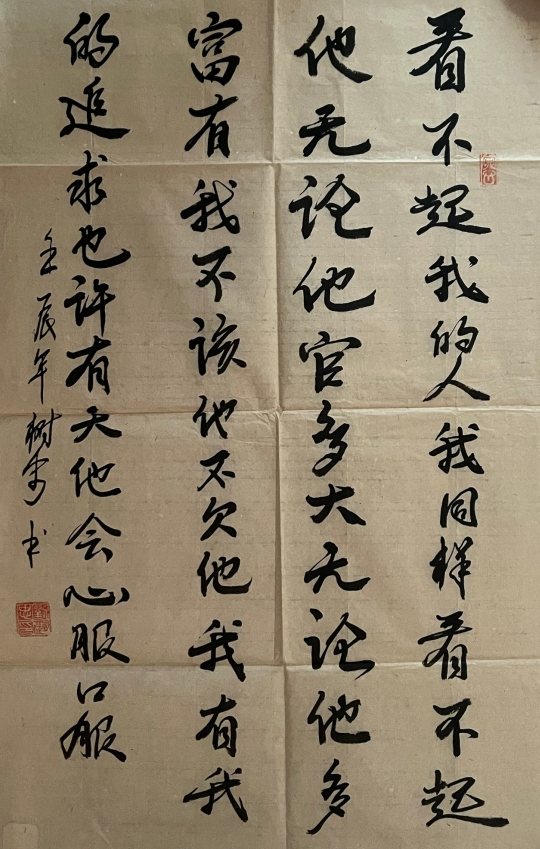 看不起我的人我同样看不起
他无论他官多大无论他多
富有我不该他不欠他我有我
的追求也许有天他会心服口服
壬辰年树安书